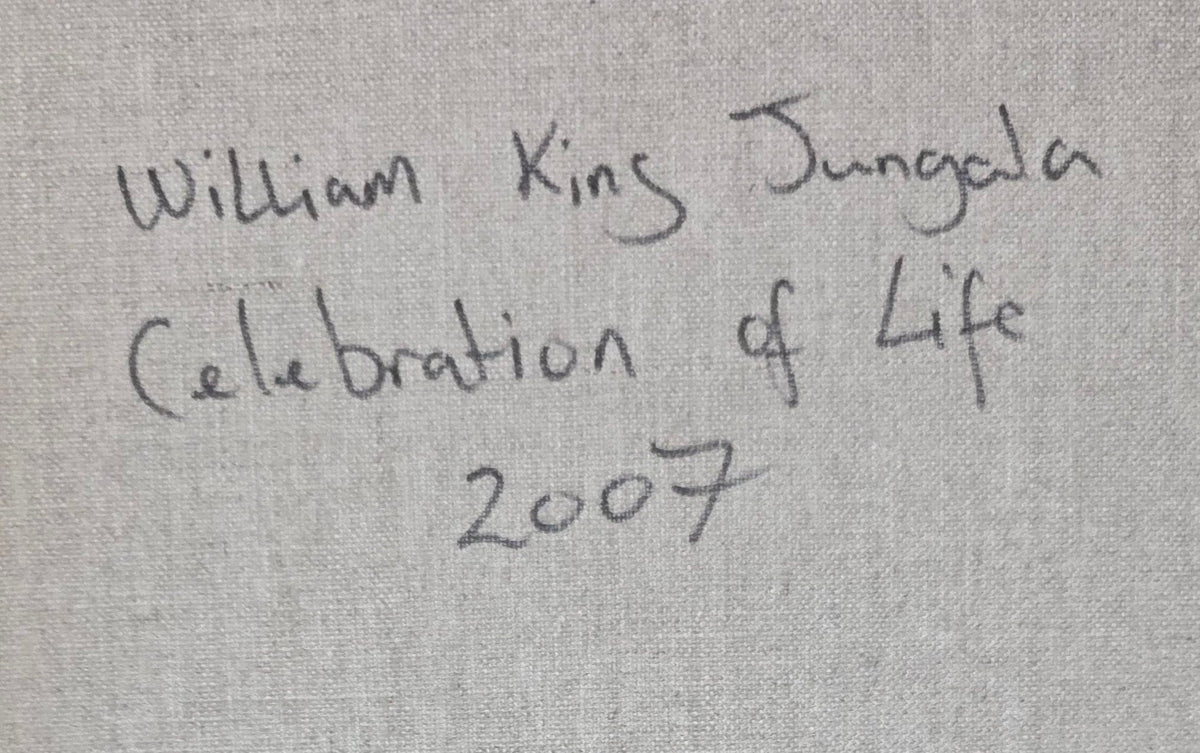 William King Jungala
Celebration of Life
2007